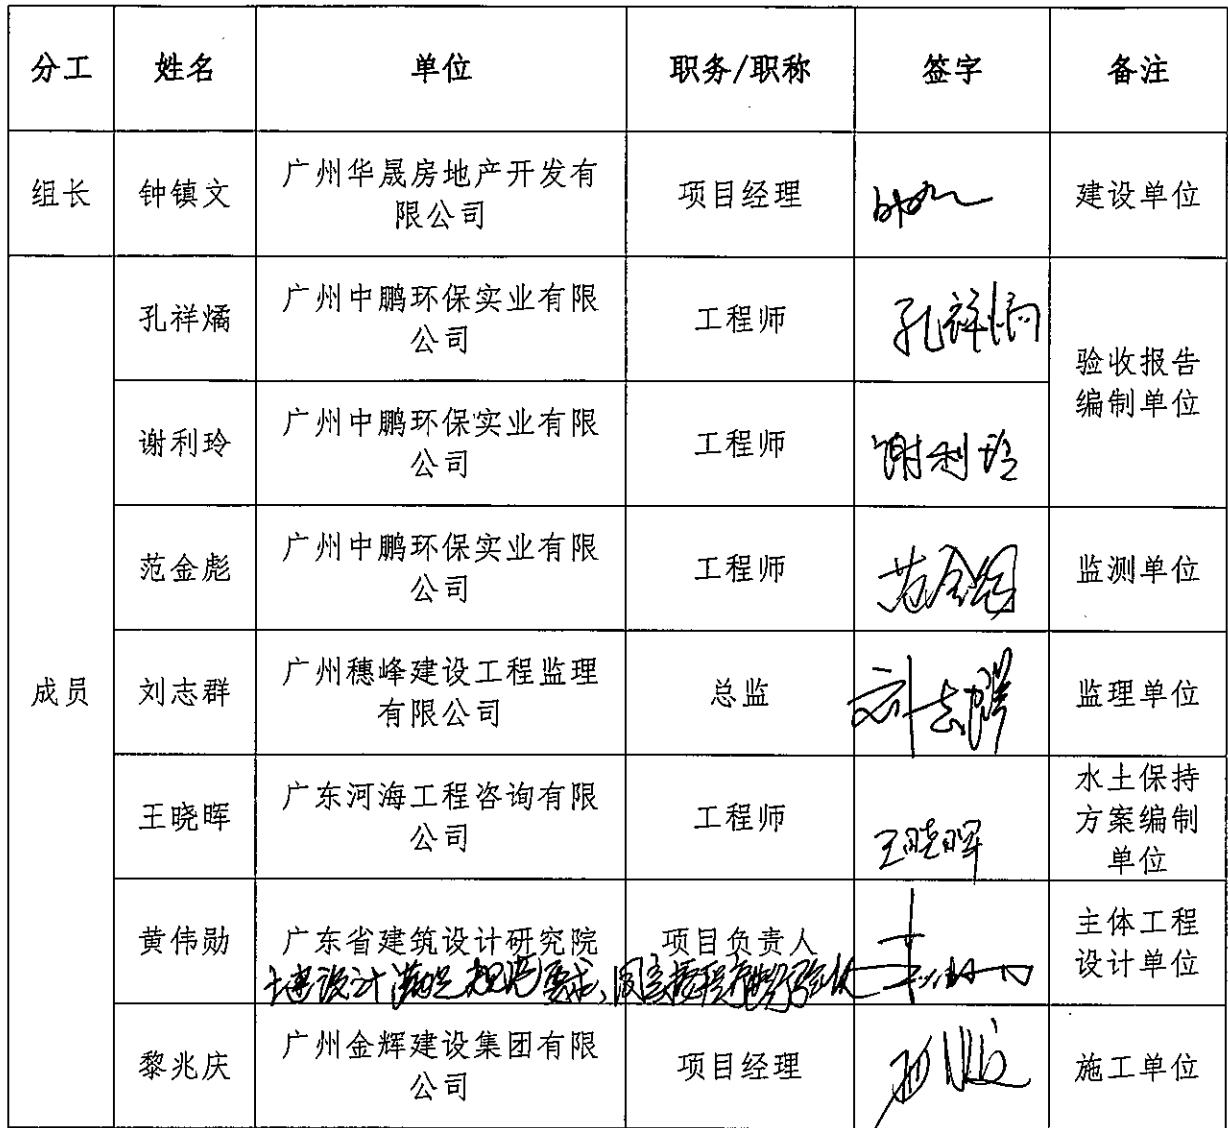 分工 姓名 单位 职务/职称 签字 备注
组长 钟镇文 广州华晟房地产开发有
限公司 项目经理 建设单位
成员
孔祥燏 广州中鹏环保实业有限
公司 工程师 孔祥燏
验收报告
编制单位
谢利玲 广州中鹏环保实业有限
公司 工程师 谢利玲
范金彪 广州中鹏环保实业有限
公司 工程师 范金彪 监测单位
刘志群 广州穗峰建设工程监理
有限公司 总监 刘志群 监理单位
王晓晖 广东河海工程咨询有限
公司 工程师 王晓晖
水土保持
方案编制
单位
黄伟勋 广东省建筑设计研究院 项目负责人
主体工程
设计单位
土建设计满足规范要求、同意
黎兆庆 广州金辉建设集团有限
公司 项目经理 施工单位